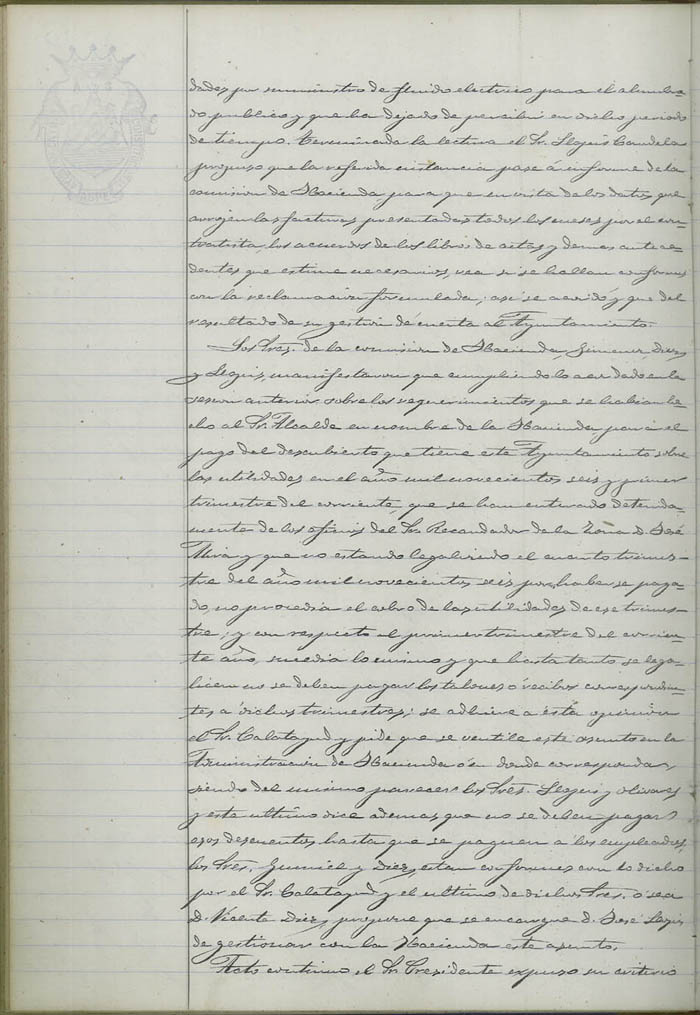 dades por suministro de fluido electrico para el alumbra-
do publico y que ha dejado de percibir en dicho periodo
de tiempo. Terminada la lectura el Sr. Llopis Candela
propuso que la referida instancia pase á informe de la
comision de Hacienda para que en vista de los datos que
arrojen las facturas presentadas todos los meses por el con-
tratista, los acuerdos de los libros de actas y demas antece-
dentes que estime necesarios, vea si se hallan conformes
con la reclamacion formulada; asi se acordó y que del
resultado de su gestion dé cuenta al Ayuntamiento.
Los Sres. de la comision de Hacienda, Gimenez, Diez
y Llopis, manifestaron que cumpliendo lo acordado en la
sesion anterior sobre los requerimientos que se habian he-
cho al Sr. Alcalde en nombre de la Hacienda, para el
pago del descubierto que tiene este Ayuntamiento sobre
las utilidades en el año mil novecientos seis y primer
trimestre del corriente, que se han enterado detenida-
mente de los oficios del Sr. Recaudador de la Zona D. José
Mira y que no estando legalizado el cuarto trimes-
tre del año mil novecientos seis por haberse paga-
do, no procedia el cobro de las utilidades de ese trimes-
tre; y con respecto al primer trimestre del corrien-
te año, sucedia lo mismo y que hasta tanto se lega-
licen no se deben pagar los talones ó recibos correspondien-
tes a dichos trimestres; se adhiere a esta opinion
el Sr. Calatayud y pide que se ventile este asunto en la
Administracion de Hacienda ó en donde corresponda,
siendo del mismo parecer los Sres. Llopis y Olivares
y este ultimo dice ademas que no se deben pagar
esos descuentos hasta que se paguen a los empleados,
los Sres. y Diez, estan conformes con lo dicho
por el Sr. Calatayud y el ultimo de dichos Sres. ó sea
D. Vicente Diez, propone que se encargue D. José Llopis
de gestionar con la Hacienda este asunto.
Acto continuo el Sr. Presidente expuso su criterio